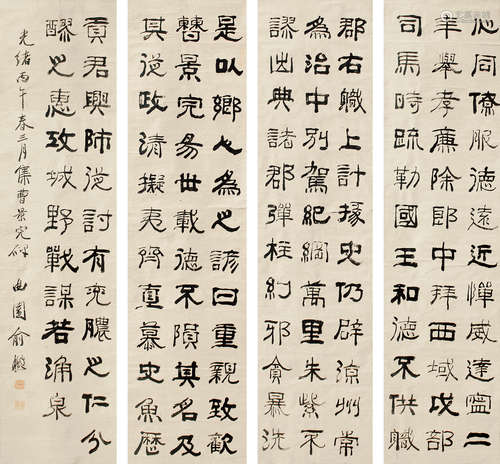 心同僚服德遠近憚威建寧二
年舉孝廉除郎中拜西域戊部
司馬時疏勒國王和德不供職
郡右職上計掾史仍辟涼州常
為治中別駕紀綱萬里朱紫不
謬出典諸郡彈枉糾邪貪暴洗
是以鄉人為之諺曰重親致歡
曹景完易世載德不隕其名及
其從政清擬夷齊直慕史魚歷
貢君興師征討有兗膿之仁分
醪之惠攻城野戰謀若涌泉
光緒丙午春三月集曹景完碑 曲園俞樾